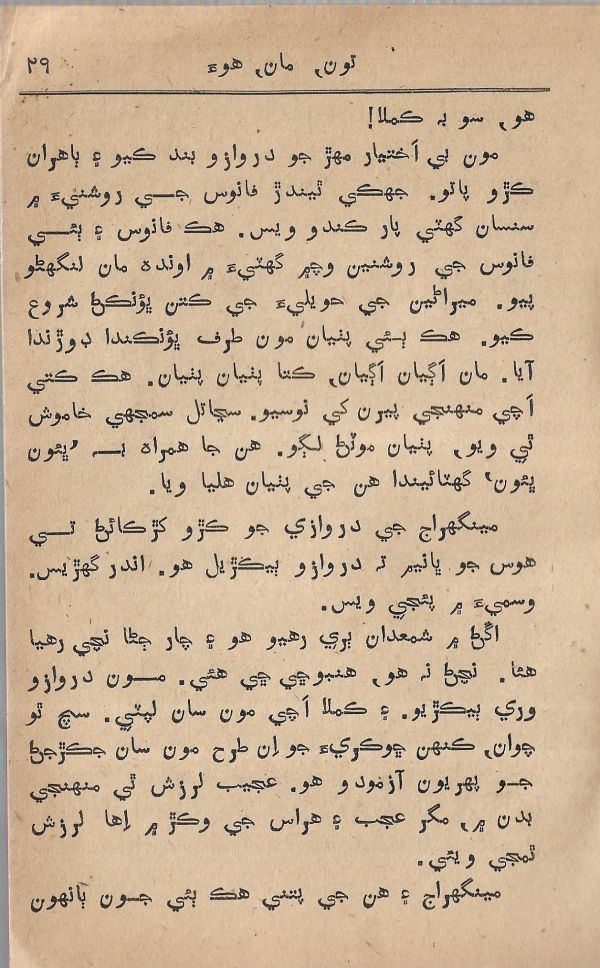 تون, مان, هوءَ ٢٩
هو, سو بہ ڪملا!
مون بي اَختيار مهڙ جو دروازو بند ڪيو ۽ ٻاهران
ڪڙو پاتو. جهڪي ٿيندڙ فانوس جــي روشنيءَ ۾
سنسان گهٽي پار ڪندو ويس. هڪ فانوس ۽ ٻئــي
فانوس جي روشنين وچ۾ گهٽيءَ ۾ اونده مان لنگهڻو
پيو. ميراڻين جي حويليءَ جي ڪتن ڀؤنڪڻ شروع
ڪيو. هڪ ٻئي پٺيان مون طرف ڀؤنڪندا ڊوڙندا
آيا. مان اَڳيان اَڳيان, ڪتا پٺيان پٺيان. هڪ ڪتي
اَچي منهنجي پيرن کي نوسيو. سڃاتل سمجهي خاموش
ٿي ويو, پٺيان موٽڻ لڳو. هن جا همراه بــہ ’ڀئون
ڀئون‘ گهٽائيندا هن جي پٺيان هليا ويا.
مينگهراج جي دروازي جو ڪڙو کڙڪائڻ تــي
هوس جو ڀانيم تہ دروازو ٻيڪڙيل هو. اندر گهڙيس.
وسميءَ ۾ پئجي ويس.
اڱڻ ۾ شمعدان ٻري رهيو هو ۽ چار ڄڻا نچي رهيا
هئا. نچڻ نہ هو, هنبوڇي ڇي هئي. مــون دروازو
وري ٻيڪڙيو. ۽ ڪملا اَچي مون سان لپٽي. سچ ٿو
چوان, ڪنهن ڇوڪريءَ جو اِن طرح مون سان جڪڙجڻ
جــو پهريون آزمودو هو. عجيب لرزش ٿي منهنجي
بدن ۾, مگر عجب ۽ هراس جي وڪڙ ۾ اِها لرزش
ٿمجي ويئي.
مينگهراج ۽ هن جي پتني هڪ ٻئي جــون ٻانهون